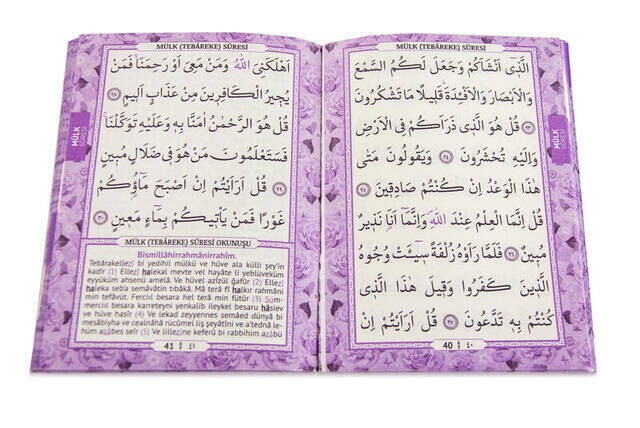 MÜLK (TEBÂREKE) SÛRESİ
الَّذِى اَنْشَاَكُمْ وَجَعَلَ لَكُمُ السَّمْعَ
وَالْاَبْصَارَ وَالْاَفْـِٔدَةَ قَلِيلًا مَا تَشْكُرُونَ
﴿٢٣﴾ قُلْ هُوَ الَّذِى ذَرَاَكُمْ فِى الْاَرْضِ
وَاِلَيْهِ تُحْشَرُونَ ﴿٢٤﴾ وَيَقُولُونَ مَتٰى
هٰذَا الْوَعْدُ اِنْ كُنْتُمْ صَادِقِينَ ﴿٢٥﴾
قُلْ اِنَّمَا الْعِلْمُ عِنْدَ اللّٰهِ وَاِنَّمَا اَنَا نَذِيرٌ
مُبِينٌ ﴿٢٦﴾ فَلَمَّا رَاَوْهُ زُلْفَةً سِيٓـَٔتْ وُجُوهُ
الَّذِينَ كَفَرُوا وَقِيلَ هٰذَا الَّذِى
كُنْتُمْ بِهِ تَدَّعُونَ ﴿٢٧﴾ قُلْ اَرَاَيْتُمْ اِنْ
40 ٤٠
MÜLK SÛRESİ
MÜLK (TEBÂREKE) SÛRESİ
اَهْلَكَنِىَ اللّٰهُ وَمَنْ مَعِىَ اَوْ رَحِمَنَا فَمَنْ
يُجِيرُ الْكَافِرِينَ مِنْ عَذَابٍ اَلِيمٍ ﴿٢٨﴾
قُلْ هُوَ الرَّحْمٰنُ اٰمَنَّا بِهِ وَعَلَيْهِ تَوَكَّلْنَا
فَسَتَعْلَمُونَ مَنْ هُوَ فِى ضَلَالٍ مُبِينٍ
﴿٢٩﴾ قُلْ اَرَاَيْتُمْ اِنْ اَصْبَحَ مَآؤُكُمْ
غَوْرًا فَمَنْ يَاْتِيكُمْ بِمَآءٍ مَعِينٍ ﴿٣٠﴾
MÜLK (TEBÂREKE) SÛRESİ OKUNUŞU
Bismillâhirrahmânirrahîm.
Tebârakellezî bi yedihil mülkü ve hüve ala külli şey'in
kadîr (1) Ellezî halekal mevte vel hayâte li yeblüveküm
eyyüküm ahsenü amelâ. Ve hüvel azîzül ğafûr (2) Ellezî
haleka seb'a semâvâtin tıbâkâ. Mâ terâ fî halkır rahmâni
min tefâvüt. Ferciıl besara hel terâ min fütûr (3) Süm-
merciıl besara karreteyni yenkalib ileykel besaru hâsiev
ve hüve hasîr (4) Ve lekad zeyyennes semâed dünyâ bi
mesâbîyha ve cealnâhâ rücûmel liş şeyâtîni ve a'tednâ le-
hüm azâbes seîr (5) Ve lillezîne keferû bi rabbihim azâbü
41 ٤١
MÜLK SÛRESİ